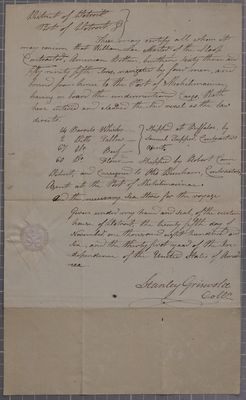 District of Detroit
Port of Detroit
These may certify all whom it
may concern, that William Lee Master of the Sloop
Contractor, American Bottom, burthen sixty three
fifty ninety fifths tons, navigated by four men, and
bound from hence to the Port of Michilimackinac,
having on board the undermentioned Cargo, Hath
here entered and cleared the said vessel as the law
directs.
24 Barrels Whiskey
2 Ditto Tallow
67 do Beef
60 do Flour
Shipped at Buffaloe, by
Shipped by Robert
Detroit, and Consigned to
Agent at the Port of Michilimackinac.
And the necessary Sea Stores for the voyage
Given under my hand and seal of the custom
house of Detroit, the twenty fifth day of
November one thousand eight hundred and
six, and the thirty first year of the Inde
pendence of the United States of Ameri
ca.
Stanley Griswold
Collr